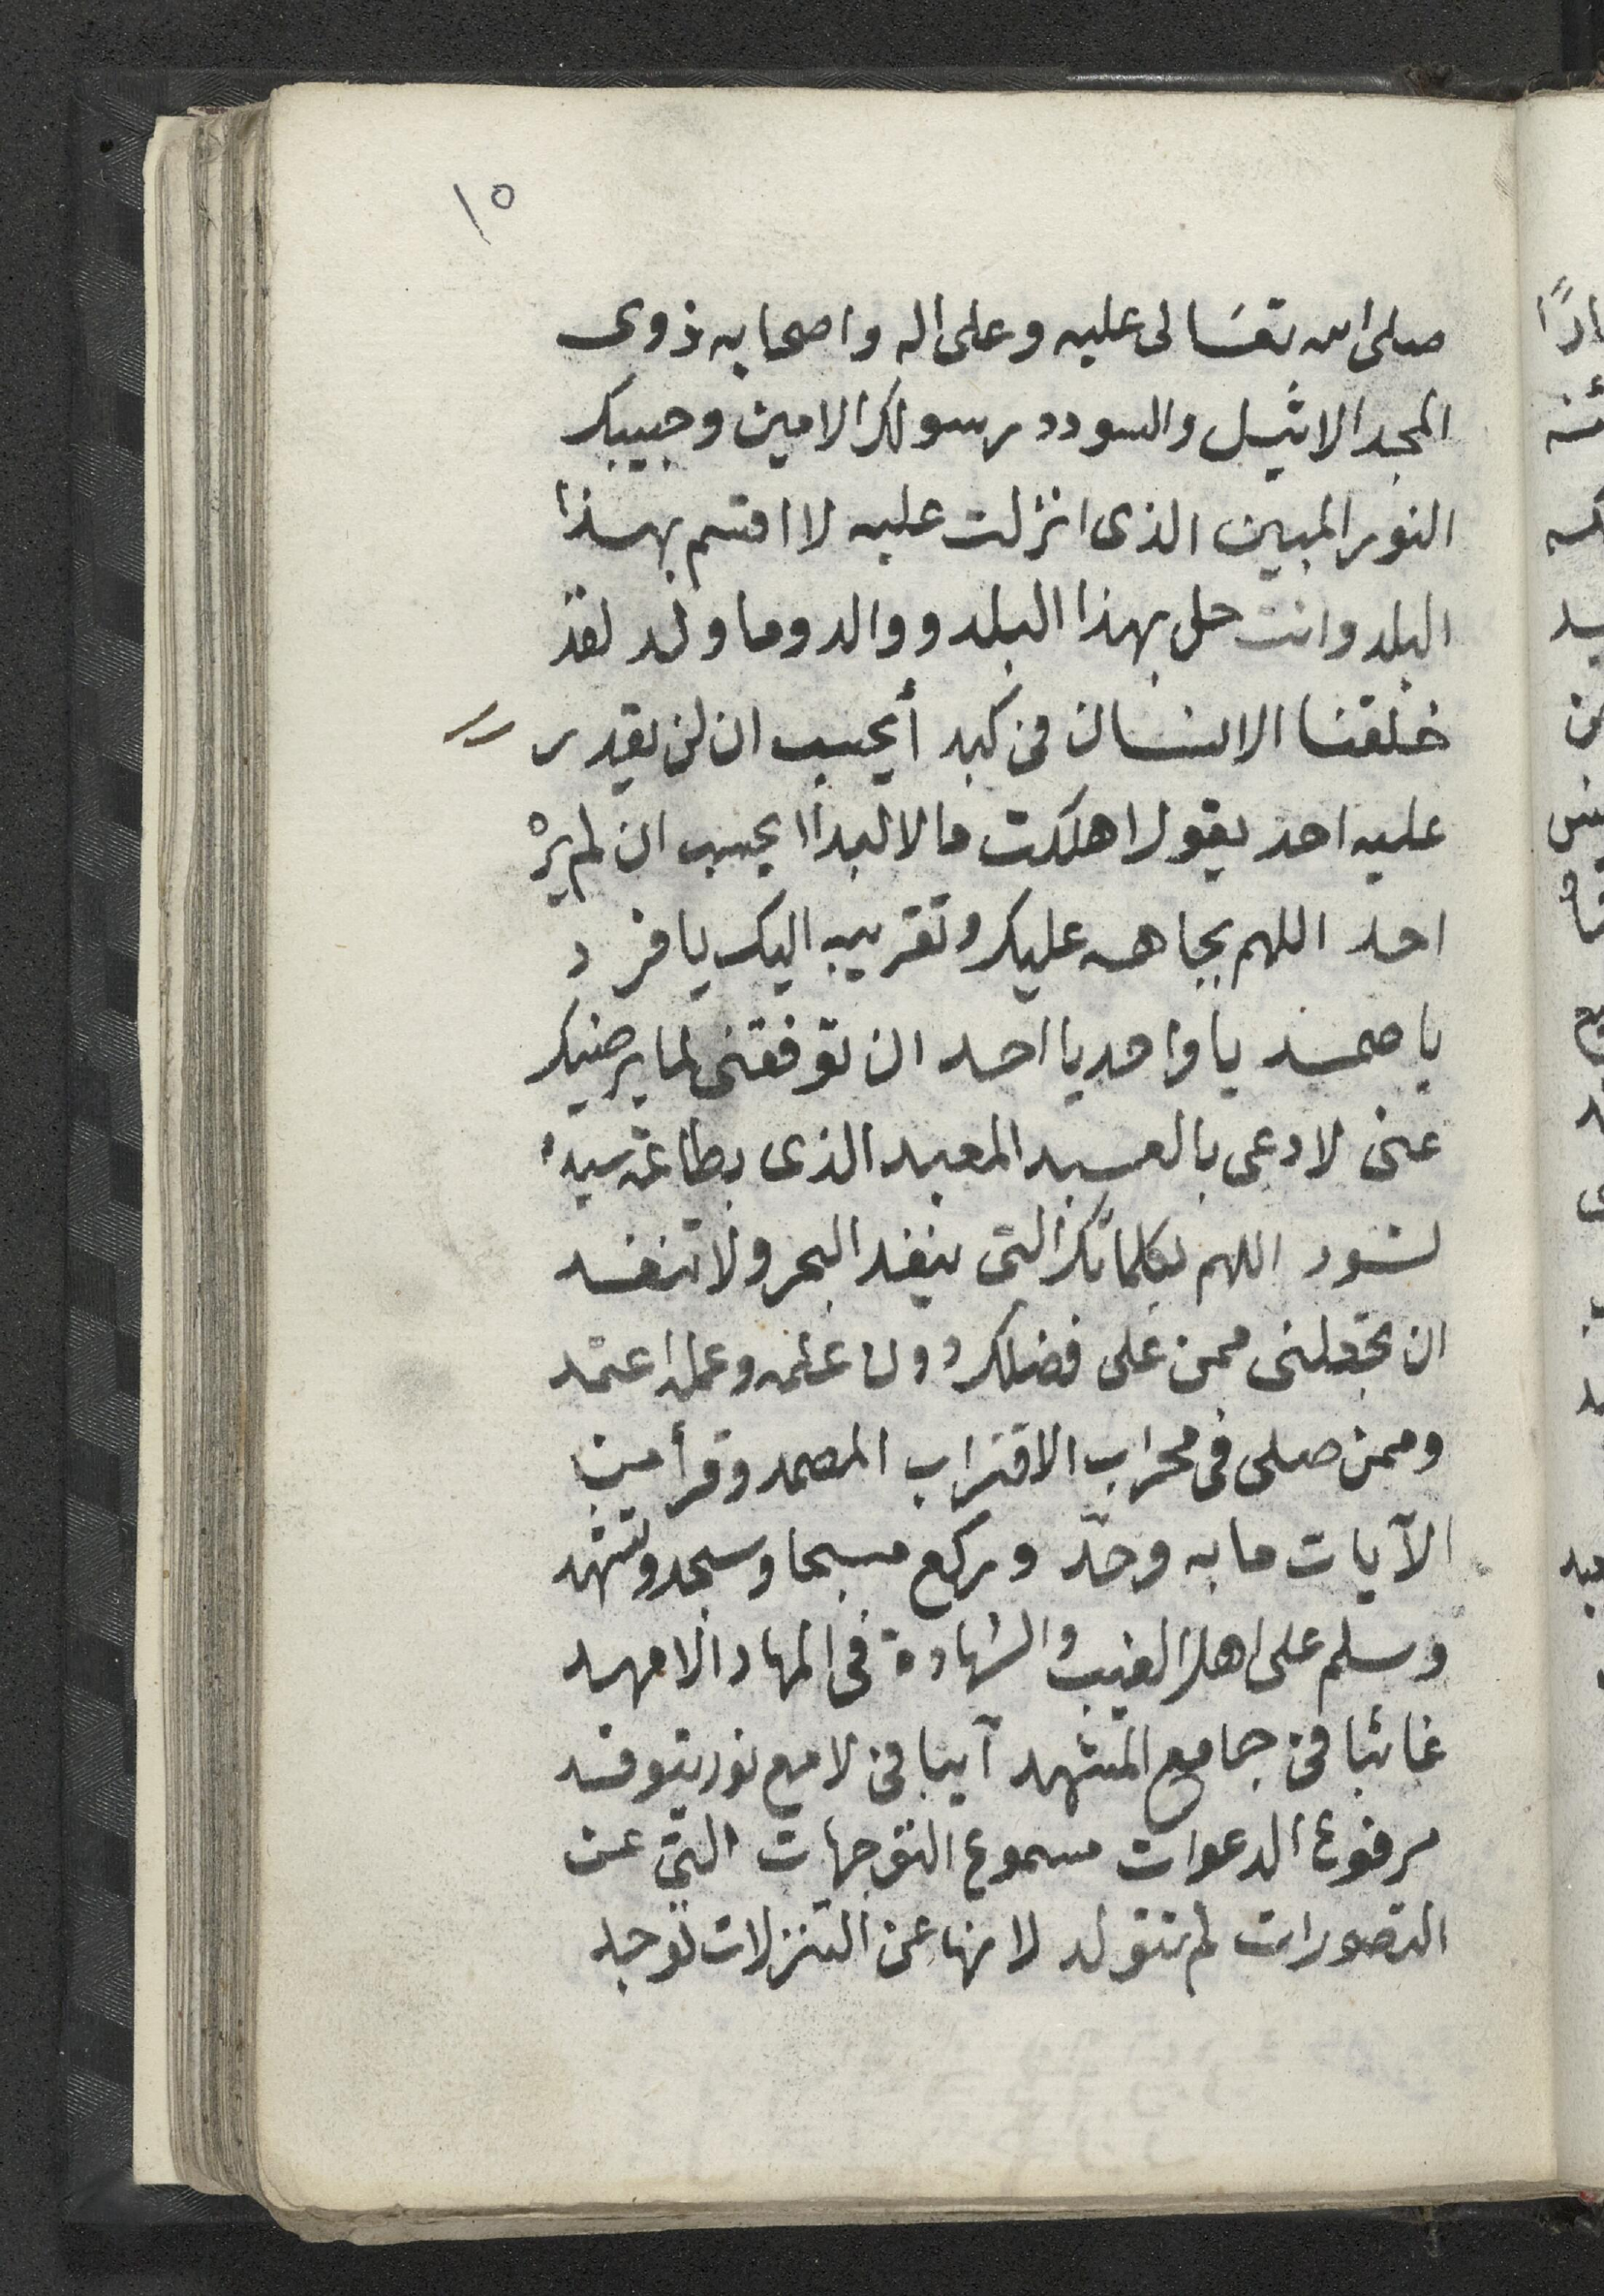 ١٥
صلى الله تعالى عليه وعلى اله واصحابه ذوى
المجد الاثيل والسودد رسولك الامين وحبيبك
النور المبين الذى انزلت عليه لا اقسم بهذا
البلد وانت حل بهذا البلد ووالد وما ولد لقد
خلقنا الانسان فى كبد أيحسب ان لن يقدر
عليه احد يقول اهلكت مالا لبدا ايحسب ان لم يره
احد اللهم بجاهه عليك وتقريبه اليك يا فرد
يا صمد يا واحد يا احد ان توفقنى لما يرضيك
عنى لادعى بالعبد المعبد الذى بطاعة سيده
تسود اللهم بكلماتك التى ينفد البحر ولا تنفد
ان تجعلنى ممن على فضلك دون علمه وعمله اعتمد
وممن صلى فى محراب الاقتراب المصمد وقرأ من
الآيات ما به وحد وركع مسبحا وسجد وتشهد
وسلم على اهل الغيب والشهادة فى المهاد الامهد
غائبا فى جامع المشهد آيبا فى لامع نور يتوقد
مرفوع الدعوات مسموع التوجهات التى عن
التصورات لم تتولد لانها عن التنزلات توجد
اذا
ئنه